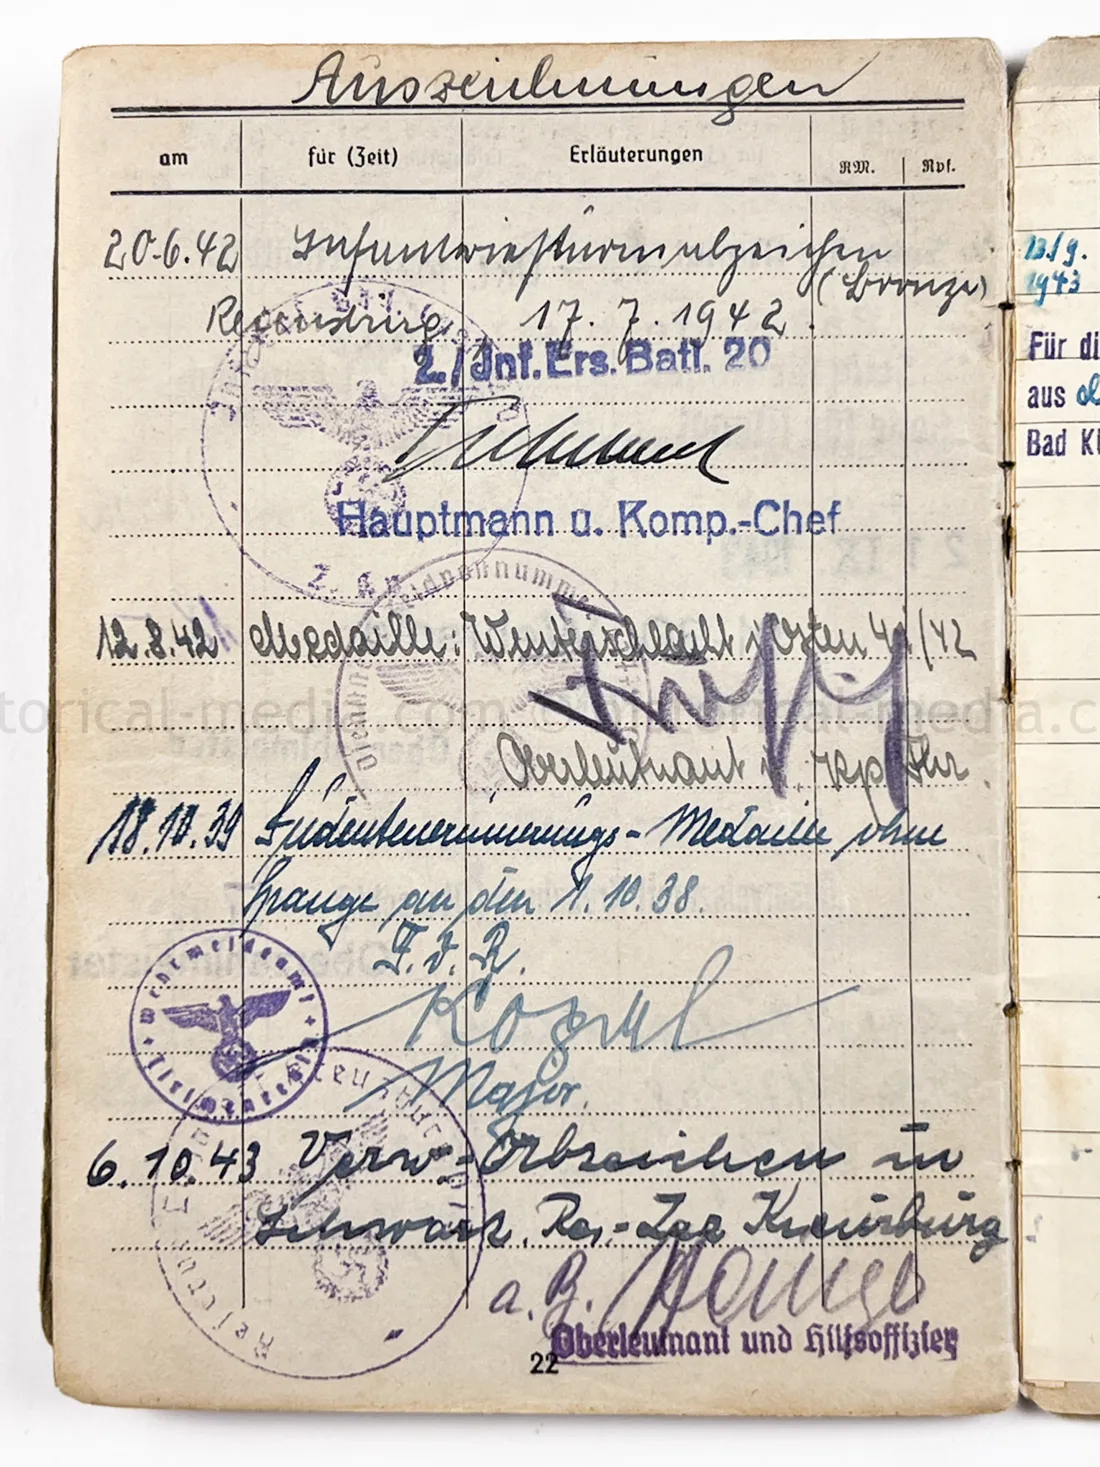 Auszeichnungen
am für (Zeit) Erläuterungen RM. Rpf.
20.6.42 Infanteriesturmabzeichen
(Bronze)
Regensburg, 17.7.1942.
2./Inf.Ers.Batl. 20
Hauptmann u. Komp.-Chef
12.8.42 Medaille: Winterschlacht i. Osten 41/42
Oberleutnant u. Kp Fhr.
18.10.39 Sudetenerinnerungs-Medaille ohne
Spange an den 1.10.38.
F. d. R.
Major.
Wehrmeldeamt
6.10.43 Verw.-Abzeichen in
Schwarz. Res.-Laz Kreuzburg
a. B.
Oberleutnant und Hilfsoffizier
22
13/9.
1943
Für di
aus
Bad K
torical-media.com © historical-media.c